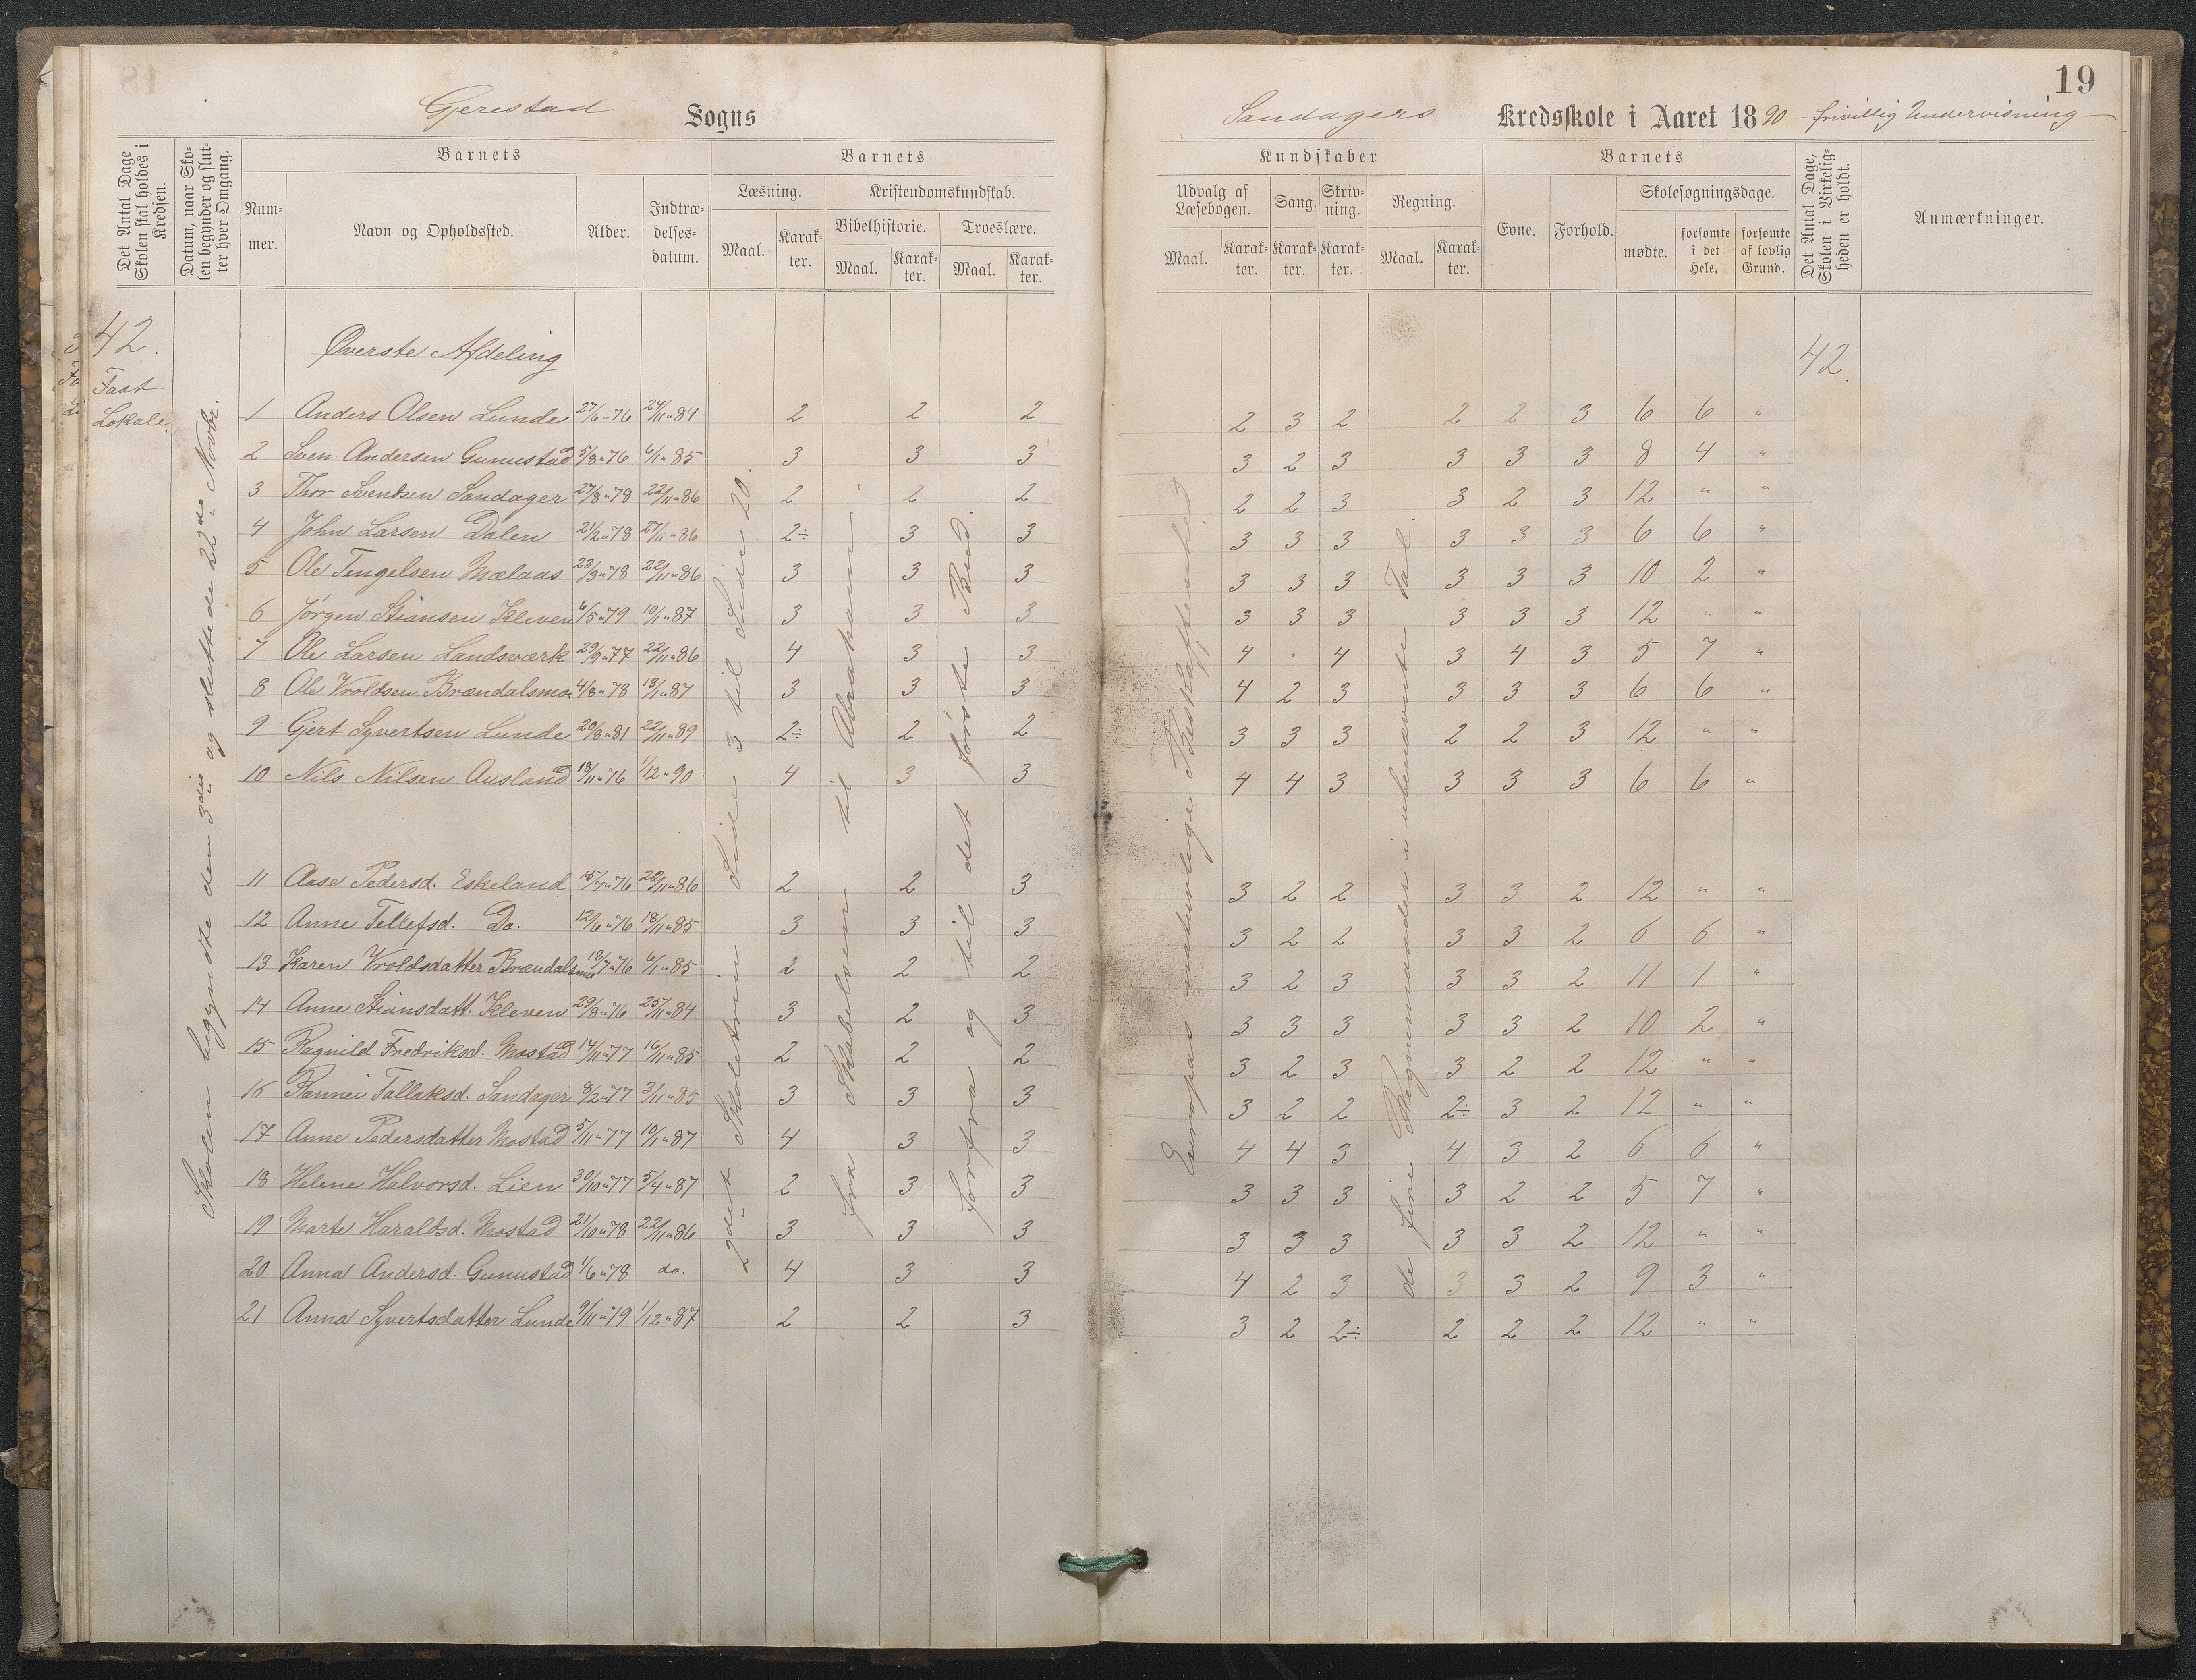 19
Gjerestad Sogns Sandagers Kredsskole i Aaret 1890 – frivillig Undervisning –
Det Antal Dage Skolen skal holdes i Kredsen.
Datum, naar Skolen begynder og slutter hver Omgang.
Barnets
Nummer.
Navn og Opholdssted.
Alder.
Indtrædelsesdatum.
Barnets
Læsning.
Maal.
Karakter.
Kristendomskundskab.
Bibelhistorie.
Maal.
Karakter.
Troeslære.
Maal.
Karakter.
Kundskaber
Udvalg af Læsebogen.
Maal.
Karakter.
Sang.
Karakter.
Skrivning.
Karakter.
Regning.
Maal.
Karakter.
Barnets
Evne.
Forhold.
Skolesøgningsdage.
mødte.
forsømte i det Hele.
forsømte af lovlig Grund.
Det Antal Dage, Skolen i Virkeligheden er holdt.
Anmærkninger.
42.
Fast
Lokale.
Skolen begyndte den 3die og sluttede 22de Novbr.
Øverste Afdeling
42.
2det Skoletrin Siden 3 til Side 20.
Fra Skabelsen til Abraham.
Forfra og til det første Bud.
Europas naturlige Beskaffenhed
de fire Regningsmaader i ubenævnte Tal.
1 Anders Olsen Lunde 27/6 76 24/11 84 2 2 2 2 3 2 2 2 3 6 6 "
2 Sven Andersen Gunnestad 5/8 76 6/1 85 3 3 3 3 2 3 3 3 3 8 4 "
3 Thor Svendsen Sandager 27/8 78 22/11 86 2 2 2 2 2 3 3 2 3 12 " "
4 John Larsen Dalen 21/2 78 27/11 86 2÷ 3 3 3 3 3 3 3 3 6 6 "
5 Ole Tengelsen Mælaas 23/3 78 22/11 86 3 3 3 3 3 3 3 3 3 10 2 "
6 Jørgen Stiansen Kleven 6/5 79 10/1 87 3 3 3 3 3 3 3 3 3 12 " "
7 Ole Larsen Landsværk 29/9 77 22/11 86 4 3 3 4 " 4 3 4 3 5 7 "
8 Ole Vroldsen Brændalsmo 4/8 78 13/1 87 3 3 3 4 2 3 3 3 3 6 6 "
9 Gjert Syvertsen Lunde 20/8 81 22/11 89 2÷ 2 2 3 3 3 2 2 3 12 " "
10 Nils Nilsen Ausland 18/11 76 1/12 90 4 3 3 4 4 3 3 3 3 6 6 "
11 Aase Pedersd. Eskeland 15/7 76 22/11 86 2 2 3 3 2 2 3 3 2 12 " "
12 Anne Tellefsd. Do. 12/6 76 18/11 85 3 3 3 3 2 2 3 3 2 6 6 "
13 Karen Vroldsdatter Brændalsmo 18/7 76 6/1 85 2 2 2 3 2 3 3 3 2 11 1 "
14 Anne Stiansdatt. Kleven 29/8 76 25/11 84 3 2 3 3 3 3 3 3 2 10 2 "
15 Ragnild Fredriksd. Mostad 14/11 77 16/11 85 2 2 2 3 2 3 3 2 2 12 " "
16 Rannei Tallaksd. Sandager 8/2 77 3/11 85 3 3 3 3 2 2 2÷ 3 2 12 " "
17 Anne Pedersdatter Mostad 5/11 77 10/1 87 4 3 3 4 4 3 4 3 2 6 6 "
18 Helene Halvorsd. Lien 30/10 77 5/4 87 2 3 3 3 3 3 3 2 2 5 7 "
19 Marte Haraldsd. Mostad 21/10 78 22/11 86 3 3 3 3 3 3 3 3 2 12 " "
20 Anna Andersd. Gunnestad 1/6 78 do. 4 3 3 4 2 3 3 3 2 9 3 "
21 Anna Syvertsdatter Lunde 9/11 79 1/12 87 2 2 3 3 2 2÷ 2 2 2 12 " "